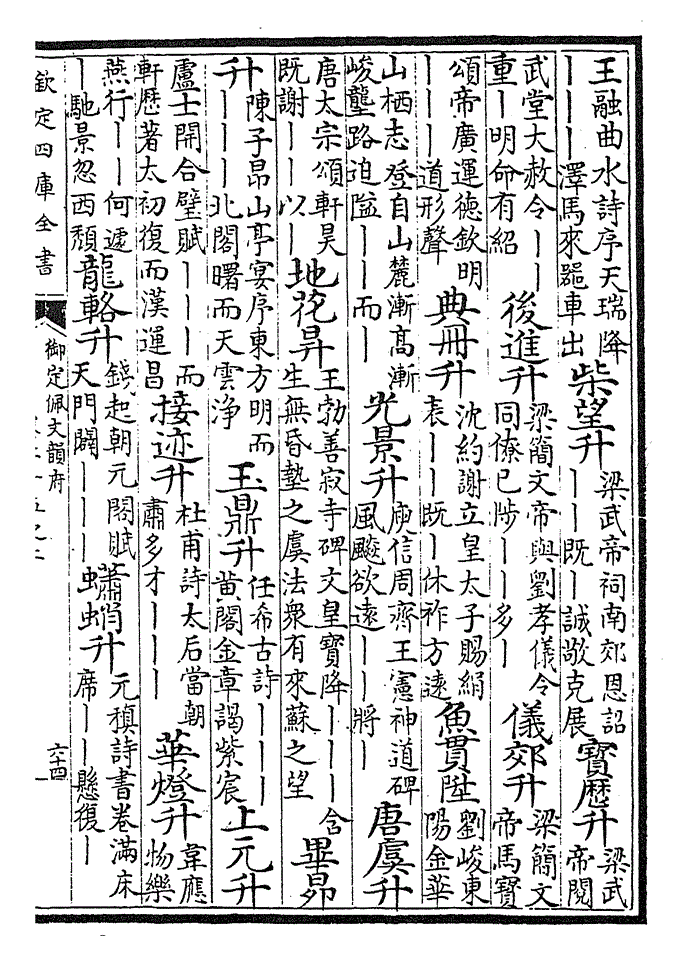 王融曲水詩序天瑞降丨丨丨澤馬來器車出柴望升梁武帝祠南郊恩詔丨丨既丨誠敬克展寳歷升梁武帝閱
武堂大赦令丨丨重丨明命有紹後進升梁簡文帝與劉孝儀令同僚已陟丨丨多丨儀郊升梁簡文帝馬寳
頌帝廣運德欽明丨丨丨道形聲典冊升沈約謝立皇太子賜絹表丨丨既丨休祚方逺魚貫陞劉峻東陽金華
山栖志登自山麓漸高漸峻壟路迫隘丨丨而丨光景升庾信周齊王憲神道碑風飇欲逺丨丨將丨唐虞升
唐太宗頌軒昊既謝丨丨以丨地花昇王勃善寂寺碑文皇寳降丨丨丨含生無昏墊之虞法衆有來蘇之望畢昴
升陳子昂山亭宴序東方明而丨丨丨北閣曙而天雲淨玉鼎升任希古詩丨丨丨黄閣金章謁紫宸上元升
盧士開合璧賦丨丨丨而軒歷著太初復而漢運昌接迹升杜甫詩太后當朝肅多才丨丨丨華燈升韋應物樂
燕行丨丨何遽丨馳景忽西頽龍輅升錢起朝元閣賦天門闢丨丨丨蠨蛸升元稹詩書卷滿床席丨丨懸復丨
欽定四庫全書
御定佩文韻府
六十四